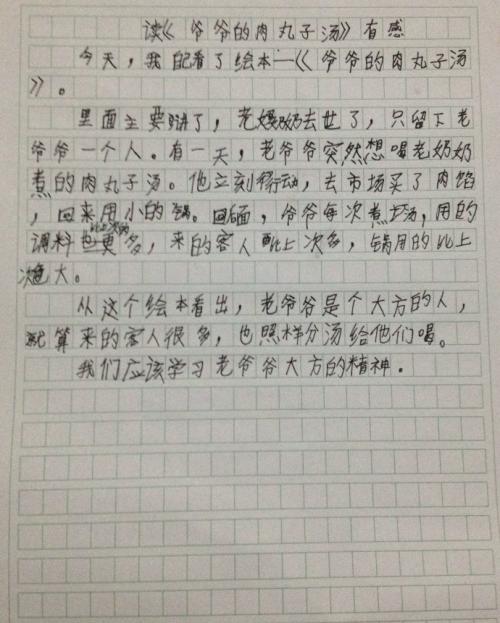 读《爷爷的肉丸子汤》有感
今天，我看了绘本—《爷爷的肉丸子汤
》。
里面主要讲了，老奶奶去世了，只留下老
爷爷一个人。有一天，老爷爷突然想喝老奶奶
煮的肉丸子汤。他立刻行动，去市场买了肉馅
，回来用小的锅。后面，爷爷每次煮汤，用的
调料比上次的更多，来的客人比上次多，锅用的比上
次大。
从这个绘本看出，老爷爷是个大方的人，
就算来的客人很多，也照样分汤给他们喝。
我们应该学习老爷爷大方的精神。